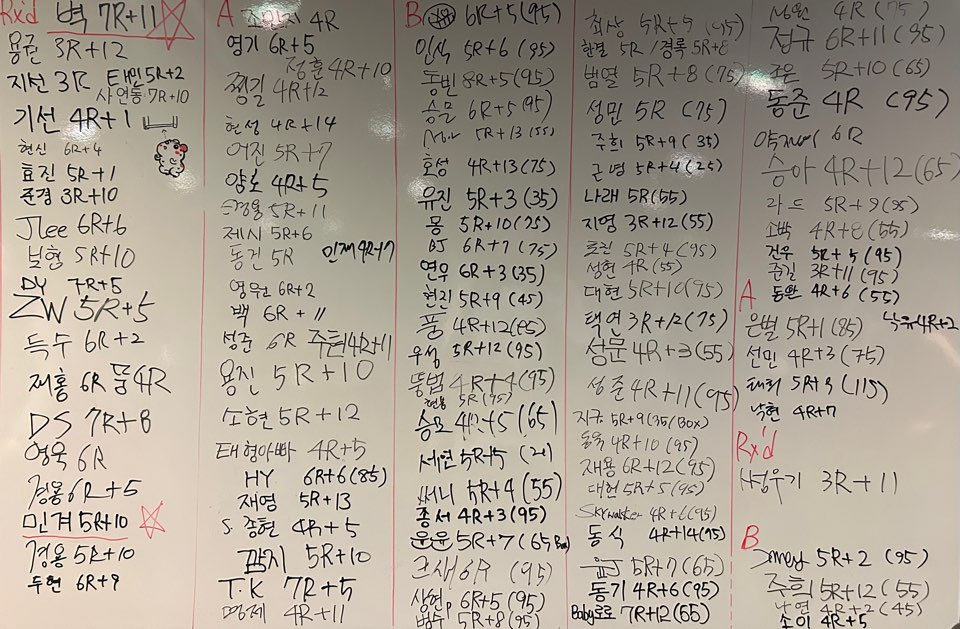 Rx'd 벽 7R+11
용근 3R+12
지선 3R 태민 5R+2
사언동 7R+10
기선 4R+1
현신 6R+4
효진 5R+1
준경 3R+10
Jlee 6R+6
보형 5R+10
DY 7R+5
ZW 5R+5
득수 6R+2
재홍 6R 뭉 4R
DS 7R+8
영욱 6R
경몽 6R+5
민겨 5R+10
경용 5R+10
두현 6R+9
A 4R
영기 6R+5
정훈 4R+10
찡길 4R+12
현성 4R+14
어진 5R+7
양호 4R+5
5R+11
제시 5R+6
동건 5R 인재 4R+7
영원 6R+2
백 6R+11
성준 6R 주현 4R+11
용진 5R+10
소현 5R+12
태형아빠 4R+5
HY 6R+6(85)
재영 5R+13
S. 중현 4R+5
깜지 5R+10
T.K 7R+5
명제 4R+11
B 6R+5(95)
인식 5R+6 (95)
동빈 8R+5(95)
승물 6R+5(95)
5R+13 (55)
효성 4R+13(75)
유진 5R+3(35)
몽 5R+10(75)
DJ 6R+7 (75)
연우 6R+3(35)
현진 5R+9 (45)
풍 4R+12(85)
우성 5R+12(95)
뚱범 4R+4(95)
5R(95)
승모 4R+5 (65)
서연 5R+5
써니 5R+4 (55)
종서 4R+3(95)
윤윤 5R+7 (65 Box)
그새 6R (95)
상현p 6R+5(95)
범수 5R+8(95)
최상 5R+9 (95)
한결 5R / 경록 5R+8
범열 5R+8(75)
성민 5R (75)
주희 5R+9 (35)
근영 5R+4 (25)
나래 5R(55)
지영 3R+12(55)
효진 5R+4(95)
성헌 4R(55)
대현 5R+10(95)
택연 3R+12(75)
성문 4R+3(55)
성준 4R+11(95)
지규 5R+9(35/Box)
동욱 4R+10 (95)
재용 6R+12(95)
대헌 5R+5(95)
Skywalker 4R+6(95)
동식 4R+14(95)
윤J 5R+7(65)
동기 4R+6(95)
Baby로로 7R+12(65)
4R(75)
정규 6R+11(95)
조은 5R+10 (65)
동준 4R (95)
6R
승아 4R+12(65)
라드 5R+9(95)
소빡 4R+8(55)
건우 5R+5 (95)
주길 3R+11(95)
동완 4R+6 (55)
A
은별 5R+1(85) 낙유 4R+2
선민 4R+3(75)
태희 5R+3 (115)
낙현 4R+7
Rx'd
3R+11
B
5R+2 (95)
주희 5R+12(55)
나연 4R+2(45)
소이 4R+5